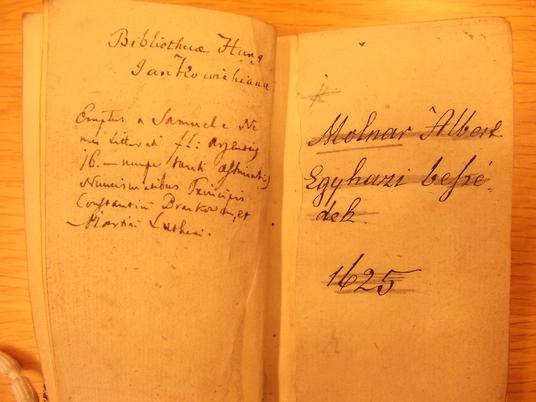 Bibliothecæ Hung
Jankowichianæ
Emptus a Samuele Ne
mes Litterati fl: argenteis
16. – nempe tanti
Numismatibus Principis
Constantini Brankovan, et
Martini Lutheri.
Molnar Albert
Egyhazi beszé-
dek.
1625